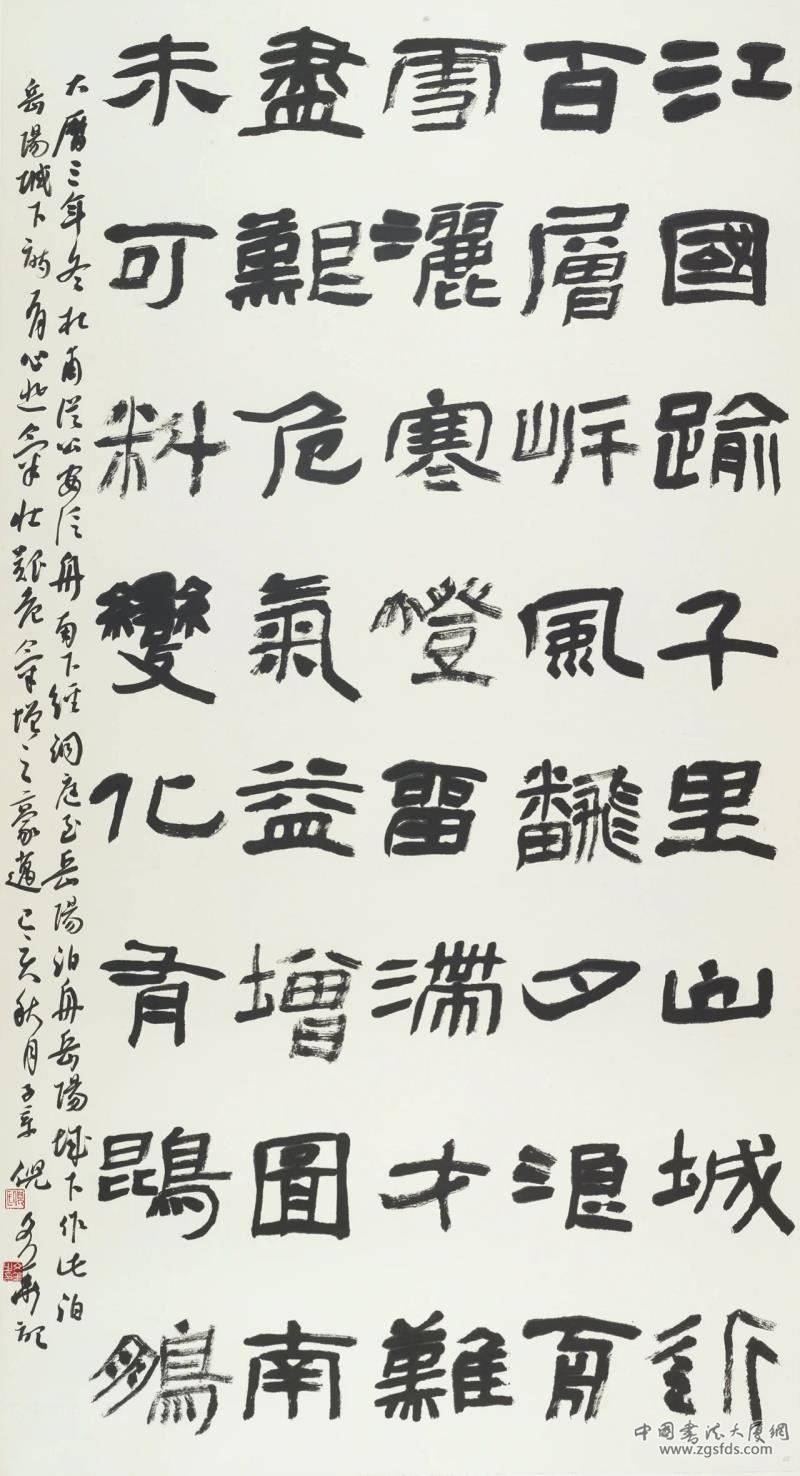 江國踰千里山城近
百層岸風飜夕浪舟
雪灑寒燈留滯才難
盡艱危氣益增圖南
未可料變化有鵾鵬
大曆三年冬杜甫從公安泛舟南下經洞庭至岳陽泊舟岳陽城下作此泊
岳陽城下詩有心悲氣壯艱危氣增之豪邁己亥秋月 倪文華記
中國書法大厦網
www.zgsfds.com